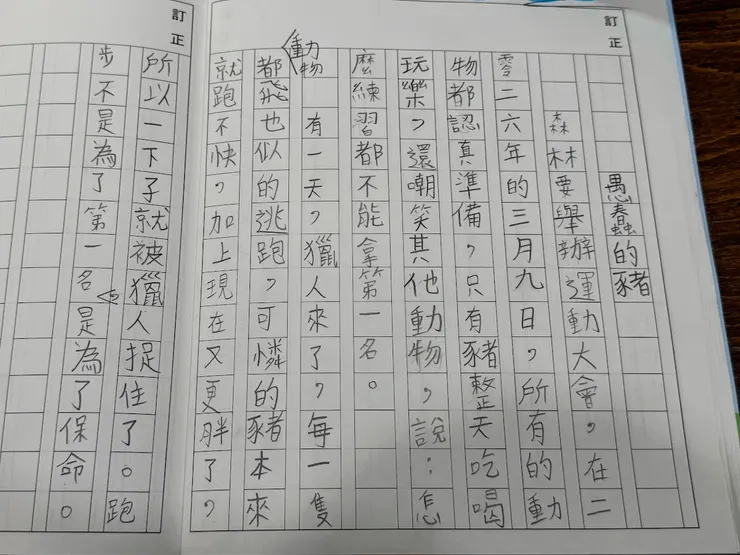 訂正
愚蠢的豬
森林要舉辦運動大會，在二
零二六年的三月九日，所有的動
物都認真準備，只有豬整天吃喝
玩樂，還嘲笑其他動物，說：怎
麼練習都不能拿第一名。
有一天，獵人來了，每一隻
動物
都飛也似的逃跑，可憐的豬本來
就跑不快，加上現在又更胖了，
訂正
所以一下子就被獵人捉住了。跑
步不是為了第一名是為了保命。